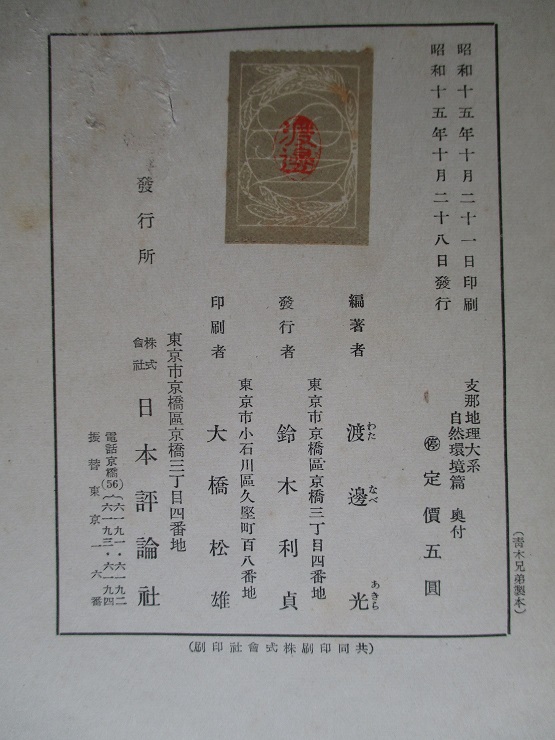 昭和十五年十月二十一日印刷
昭和十五年十月二十八日發行
支那地理大系
自然環境篇 奥付
㊞ 定價五圓
渡邊
編著者 渡邊光
わた なべ あきら
東京市京橋區京橋三丁目四番地
發行者 鈴木利貞
東京市小石川區久堅町百八番地
印刷者 大橋松雄
發行所
東京市京橋區京橋三丁目四番地
株式會社 日本評論社
電話京橋(56){六一九一・六一九二
六一九三・六一九四
振替東京一六番
(靑木兄弟製本)
(共同印刷株式會社印刷)